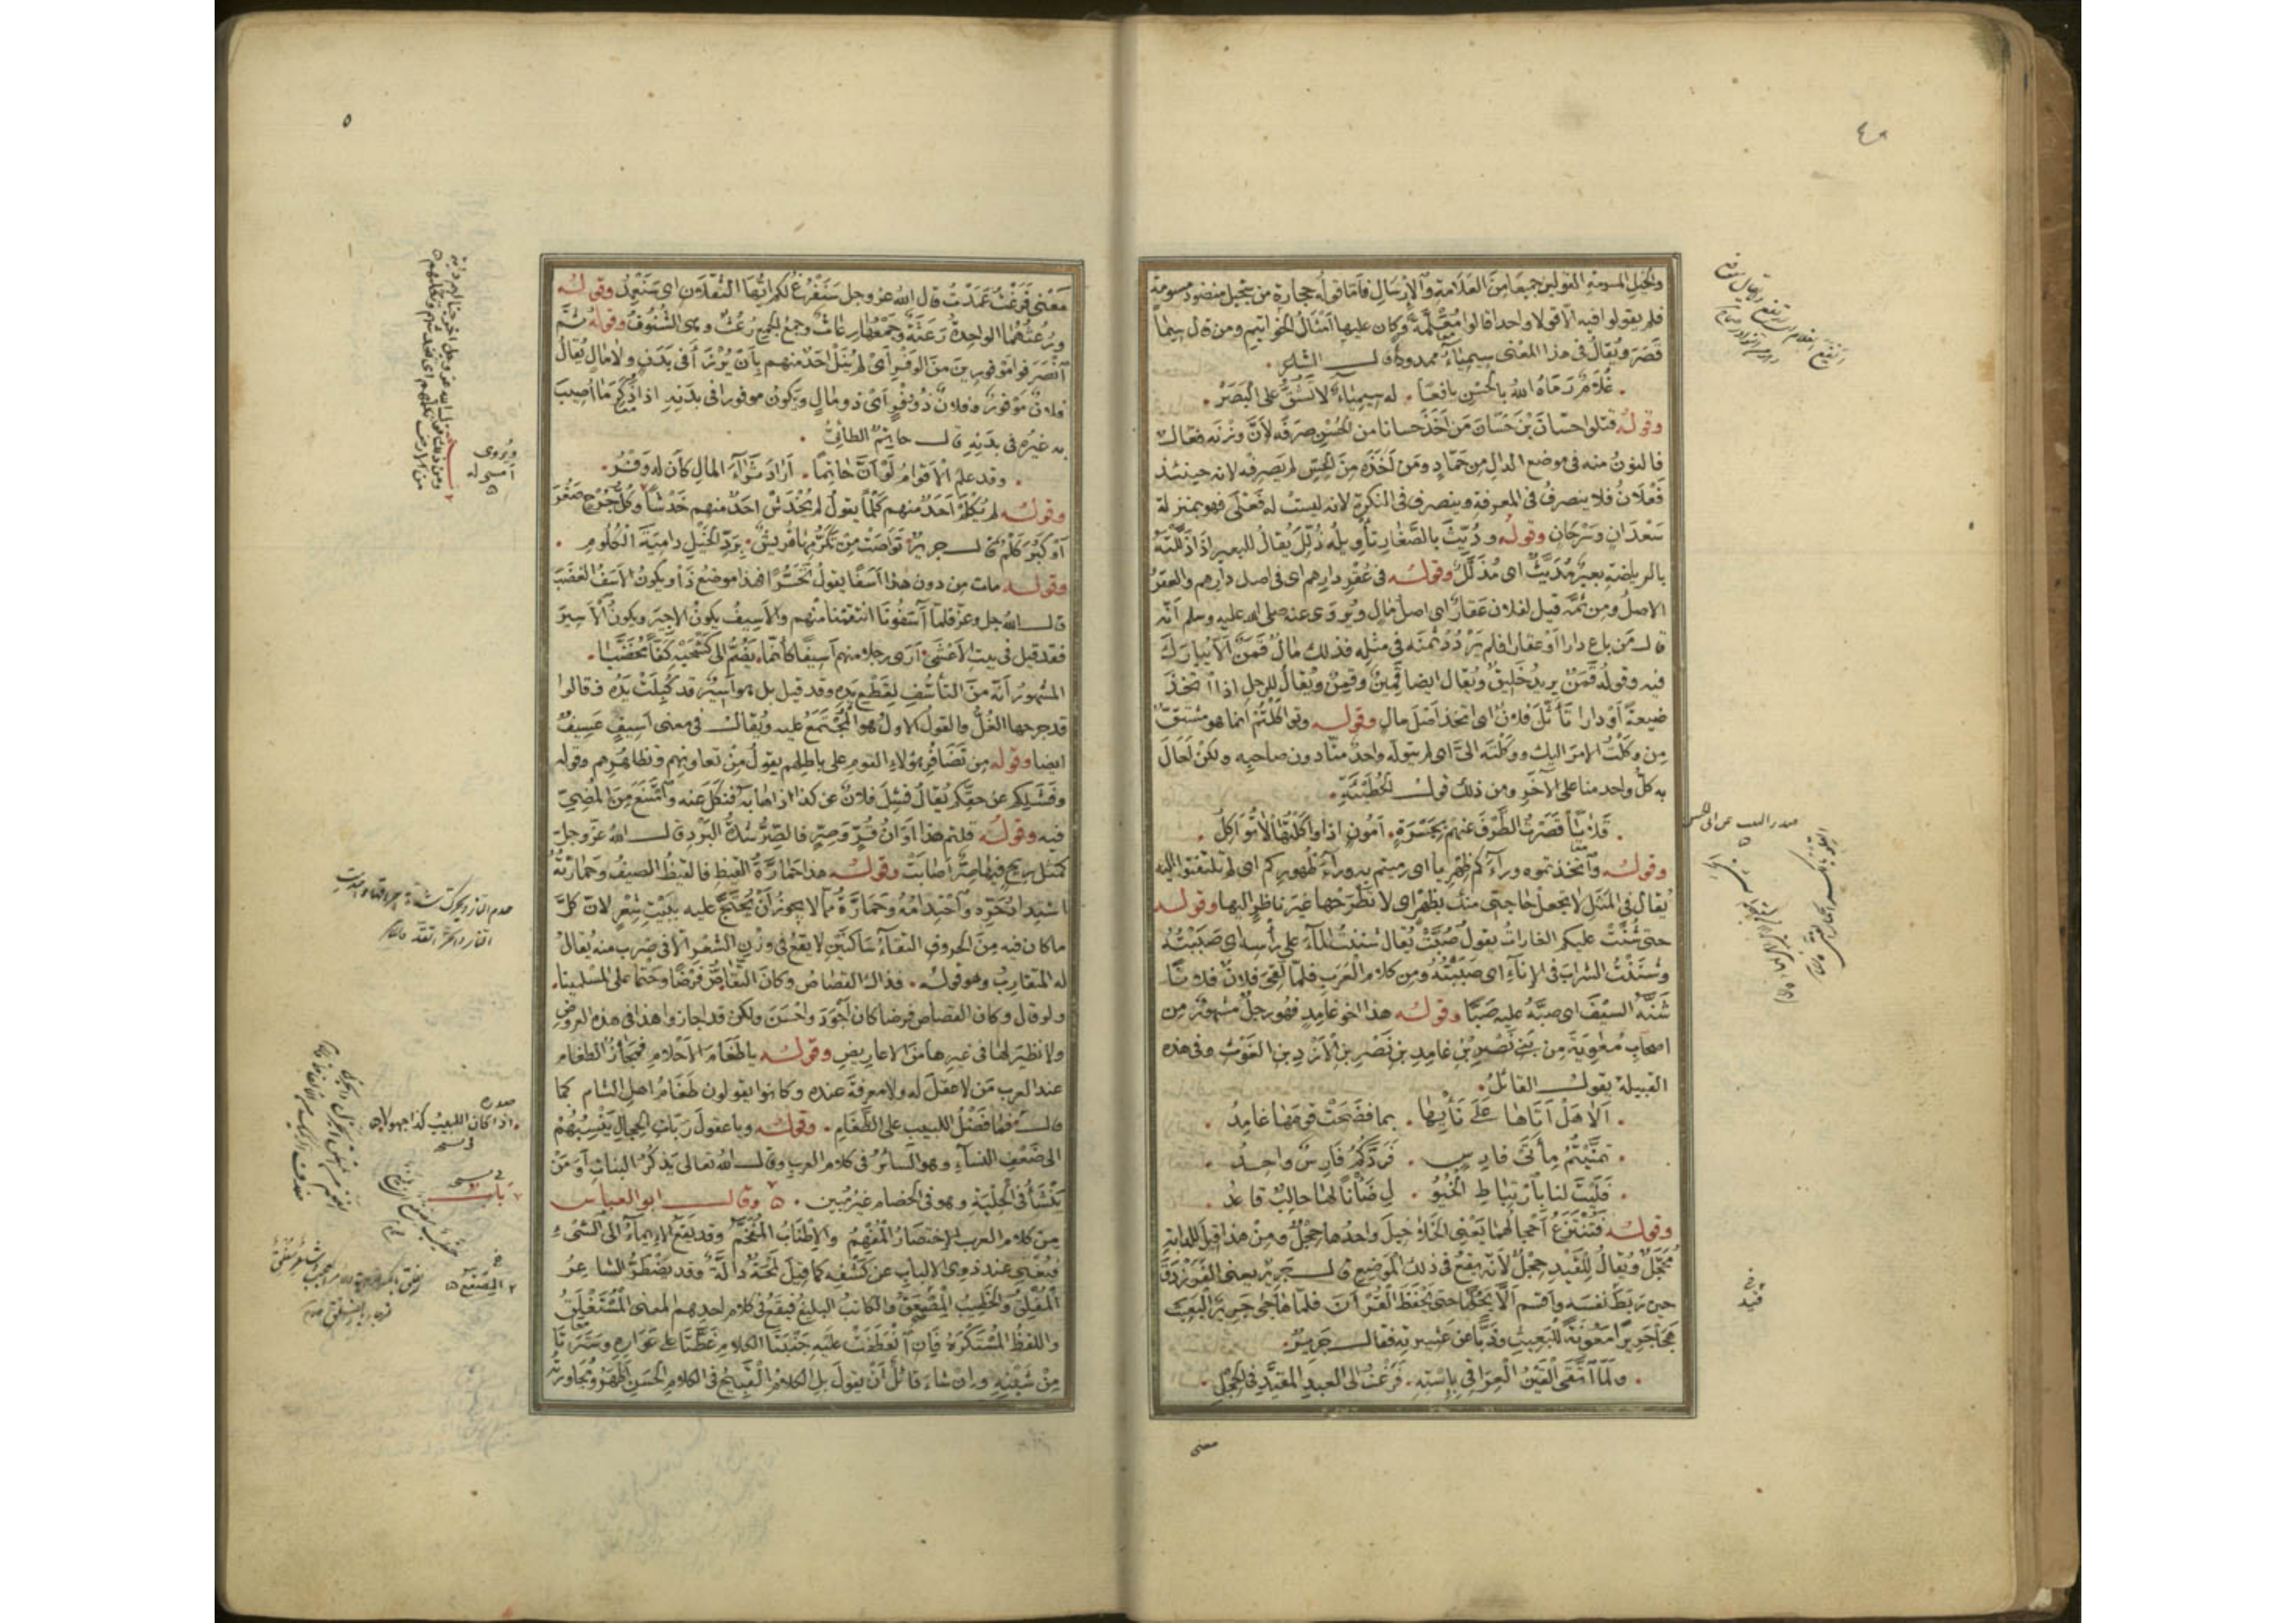 والخيل المسومة القولين جميعا من العلامة والإرسال فأما قوله حجارة من سجيل منضود مسومة
فلم يقولوا فيه الا قولا واحدا قالوا مُعَلَّمَةً وكان عليها أمثال الخواتيم ومن قال سيما
قصر ويقال في هذا المعنى سيمياء ممدود قال الشاعر
غلام رماه الله بالحسن يافعا . له سيمياء لا تشق على البصر .
وقوله قتلوا حسان بن حسان من أخذ حسانا من الحسن صرفه لأن وزنه فعال
فالنون منه في موضع الدال من حماد ومن أخذه من الحس لم يصرفه لانه حينئذ
فعلان فلا ينصرف في المعرفة وينصرف في النكرة لانه ليست له فعلى فهو بمنزلة
سعدان وسرحان وقوله وديث بالصغار تأويله ذلل يقال للبعير اذا ذللته
بالرياضة بعير مديث اى مذلل وقوله في عقر دارهم اى في اصل دارهم والعقر
الاصل ومن ثمه قيل لفلان عقار اى اصل مال ويروى عنه صلى الله عليه وسلم أنه
قال من باع دارا أو عقارا فلم يردد ثمنه في مثله فذلك مال قمن ألا يبارك
فيه وقوله قمن يريد خليق ويقال ايضا قمين وقمن ويقال للرجل اذا اتخذ
ضيعة أو دارا تأثل فلان اى اتخذ اصل مال وقوله وتواكلتم انما هو مشتق
من وكلت الامر اليك ووكلته الى اى لم يتوله واحد منا دون صاحبه ولكن احال
به كل واحد منا على الآخر ومن ذلك قول الحطيئة .
. اذا واكلتها لا تواكل .
وقوله واتخذتموه وراءكم ظهريا اى رميتم به وراء ظهوركم اى لم تلتفتوا اليه
يقال في المثل لا تجعل حاجتى منك بظهر اى لا تطرحها غير ناظر اليها وقوله
حتى شنت عليكم الغارات يقول صبت يقال شننت الماء على رأسه اى صببته
وشننت الشراب في الإناء اى صببته ومن كلام العرب فلما لقى فلان فلانا
شنه السيف اى صبه عليه صبا وقوله هذا اخو غامد فهو رجل مشهور من
اصحاب معوية من بنى نصر بن غامد بن نصر بن الأزد بن الغوث وفي هذه
القبيلة يقول القائل .
. ألا هل أتاها على نأيها . بما فضحت قومها غامد .
. تمنيتم مأتى فارس . فردكم فارس واحد .
. فليت لنا بارتباط الخيو . ل ضأنا لها حالب قاعد .
وقوله فتنتزع أحجالهما يعنى الخلاخيل واحدها حجل ومن هذا قيل للدابة
محجل ويقال للقيد حجل لأنه يقع في ذلك الموضع قال جرير يعنى الفرزدق
حين ربط نفسه وأقسم ألا يحلها حتى يحفظ القرآن فلما هاجى جرير البعيث
هجا جريرا معونة للبعيث وذبا عن عشيرته فقال جرير .
. ولما اتقى القين العراقي بإسته . فرغت الى العبد المقيد في الحجل .
معنى
٥
معنى فرغت عمدت قال الله عز وجل سنفرغ لكم ايها الثقلان اى سنعمد وقوله
ورعثهما الواحدة رعثة وجمعها رعاث وجمع الجمع رعث وهى الشنوف وقوله ثم
انصرفوا موفورين من الوفر اى لم ينل احد منهم بأن يرزأ في بدن ولا مال يقال
فلان موفور وفلان ذو وفر اى ذو مال ويكون موفورا في بدنه اذا ذكر ما اصيب
به غيره في بدنه قال حاتم الطائى .
. وقد علم الاقوام لو أن حاتما . أراد ثراء المال كان له وفر .
وقوله لم يكلم احد منهم كلما يقول لم يخدش احد منهم خدشا وكل جرح صغر
أو كبر كلم قال جرير تواصت من تكرمها قريش . برد الخيل دامية الكلوم .
وقوله مات من دون هذا أسفا يقول تحسرا فهذا موضع ذا ويكون الاسف الغضب
قال الله جل وعز فلما آسفونا انتقمنا منهم والاسيف يكون الاجير ويكون الاسير
فقد قيل في بيت الاعشى أرى رجلا منهم اسيفا كأنما يضم الى كشحيه كفا مخضبا .
المشهور أنه من التأسف لقطع يده وقد قيل بل هو اسير قد كبلت يده فقالوا
قد جرحها الغل والقول الاول هو المجتمع عليه ويقال في معنى اسيف عسيف
ايضا وقوله من تضافر هؤلاء القوم على باطلهم يقول من تعاونهم وتظاهرهم وقوله
وفشلكم عن حقكم يقال فشل فلان عن كذا اذا هابه فنكل عنه وامتنع من المضى
فيه وقوله قلتم هذا أوان قر وصر فالصر شدة البرد قال الله عز وجل
كمثل ريح فيها صر أصابت وقوله هذه حمارة القيظ فالقيظ الصيف وحمارته
اشتداد حره واحتدامه وحمارة مما لا يجوز أن يحتج عليه ببيت شعر لان كل
ما كان فيه من الحروف التقاء ساكنين لا يقع في وزن الشعر الا في ضرب منه يقال
له المتقارب وهو قوله . فذاك القصاص وكان التقاص فرضا وحتما على المسلمينا .
ولو قال وكان القصاص فرضا كان أجود واحسن ولكن قد اجازوا هذا في هذه العروض
ولا نظير لها في غيرها من الاعاريض وقوله يا طغام الاحلام فمجاز الطغام
عند العرب من لا عقل له ولا معرفة عنده وكانوا يقولون طغام اهل الشام كما
قال فما فضل اللبيب على الطغام . وقوله ويا عقول ربات الحجال ينسبهم
الى ضعف النساء وهو السائر في كلام العرب وقال الله تعالى يذكر البنات أومن
ينشأ في الحلية وهو في الخصام غير مبين . وقال ابو العباس
من كلام العرب الاختصار المفهم والاطناب المفخم وقد يقع الايماء الى الشىء
فيغنى عند ذوى الالباب عن كشفه كما قيل لمحة دالة وقد يضطر الشاعر
المفلق والخطيب المصقع والكاتب البليغ فيقع في كلام احدهم المعنى المستغلق
واللفظ المستكره فإن انعطفت عليه جنبتا الكلام غطتا على عواره وسترتا
من شينه وإن شاء قائل أن يقول بل الكلام القبيح في الكلام الحسن اظهر ومجاورته
ويروى
باب